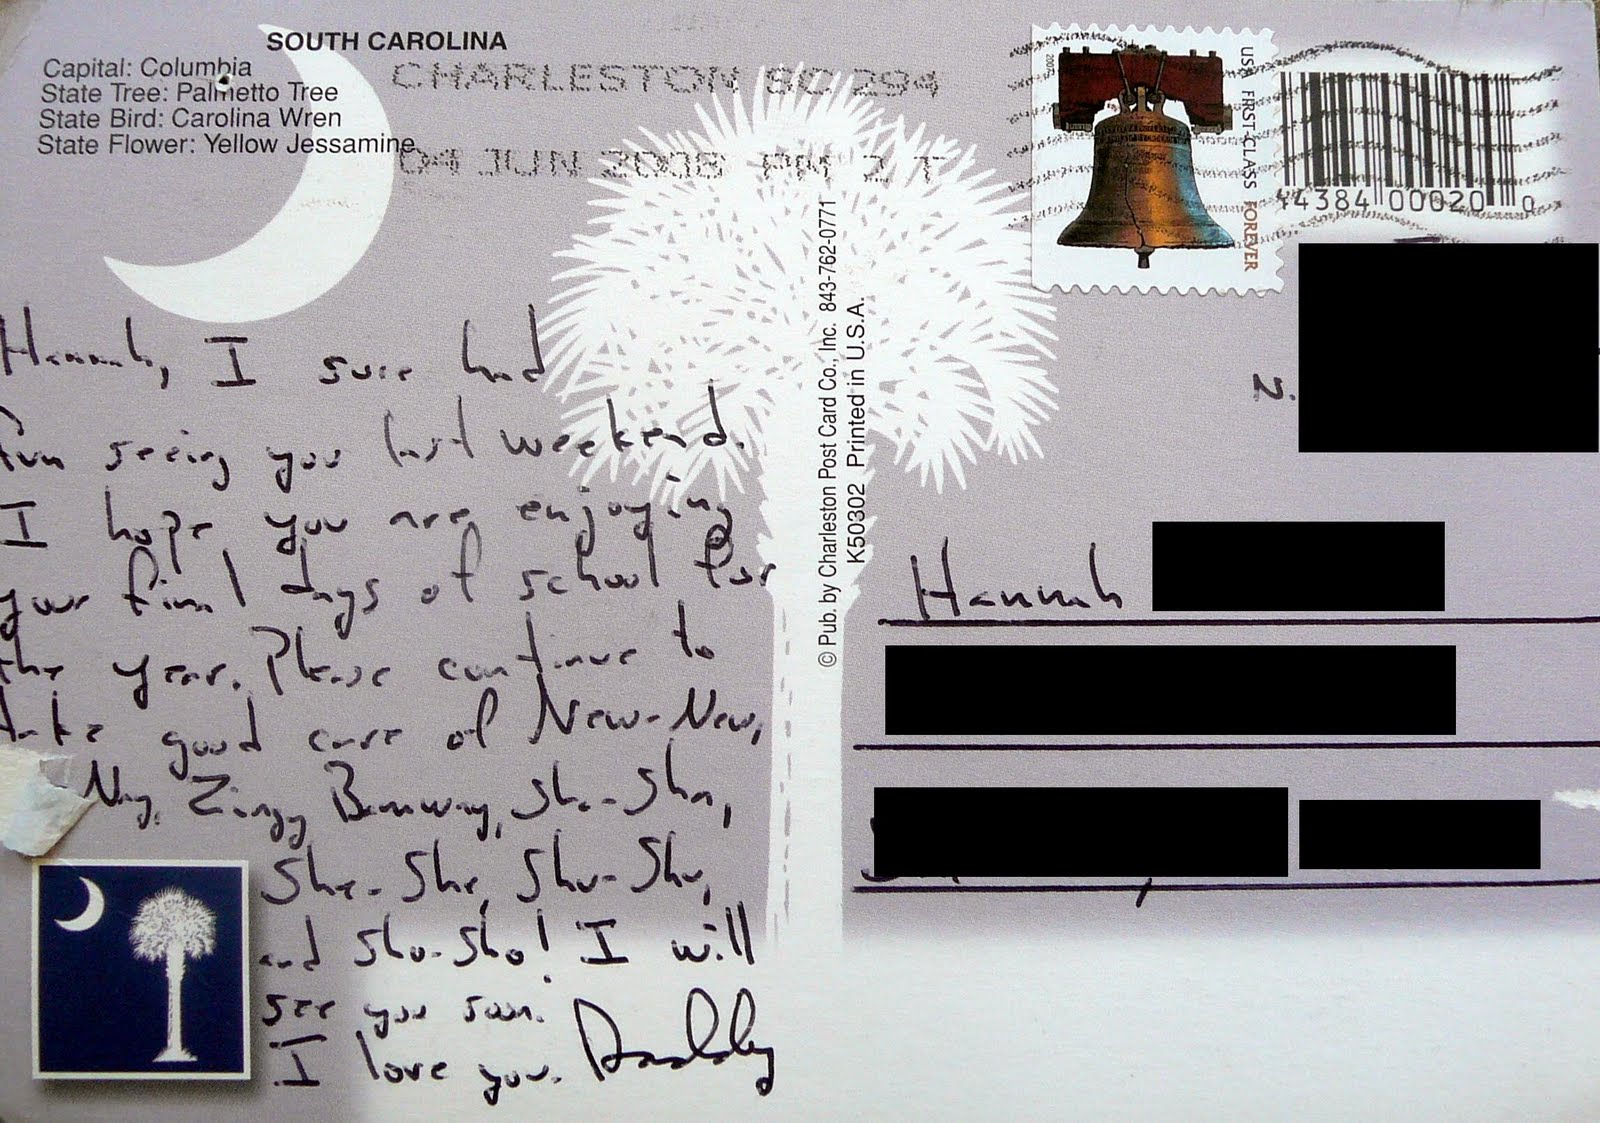 SOUTH CAROLINA
Capital: Columbia
State Tree: Palmetto Tree
State Bird: Carolina Wren
State Flower: Yellow Jessamine
CHARLESTON SC 294
04 JUN 2008 PM 2 T
USA FIRST-CLASS FOREVER
44384 00020 0
Hannah, I sure had
fun seeing you last weekend.
I hope you are enjoying
your final days of school for
the year. Please continue to
take good care of New-New,
Nay, Zingy Bonway, Sha-Sha,
She-She, Shu-Shu,
and Sho-Sho! I will
see you soon.
I love you. Daddy
© Pub. by Charleston Post Card Co., Inc. 843-762-0771
K50302 Printed in U.S.A.
2.
Hannah